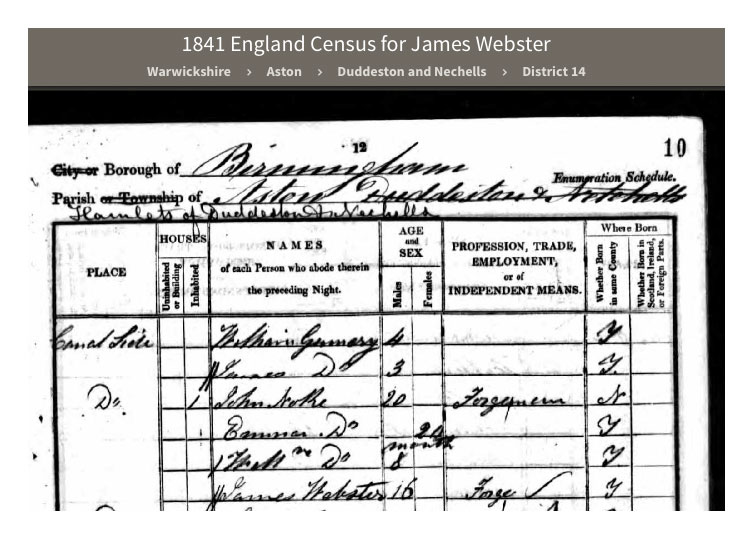 1841 England Census for James Webster
Warwickshire › Aston › Duddeston and Nechells › District 14
12
10
City or Borough of Birmingham
Enumeration Schedule.
Parish or Township of Aston Duddeston & Nechells
Hamlets of Duddeston & Nechells
PLACE
HOUSES
Uninhabited or Building
Inhabited
NAMES
of each Person who abode therein
the preceding Night.
AGE
and
SEX
Males
Females
PROFESSION, TRADE,
EMPLOYMENT,
or of
INDEPENDENT MEANS.
Where Born
Whether Born in same County
Whether Born in Scotland, Ireland, or Foreign Parts.
Canal Side William 4 Y
James Do 3 Y
Do 1 John Noke 20 N
Emma Do 20 Y
Willm Do 8 month Y
James Webster 16 Forge Y